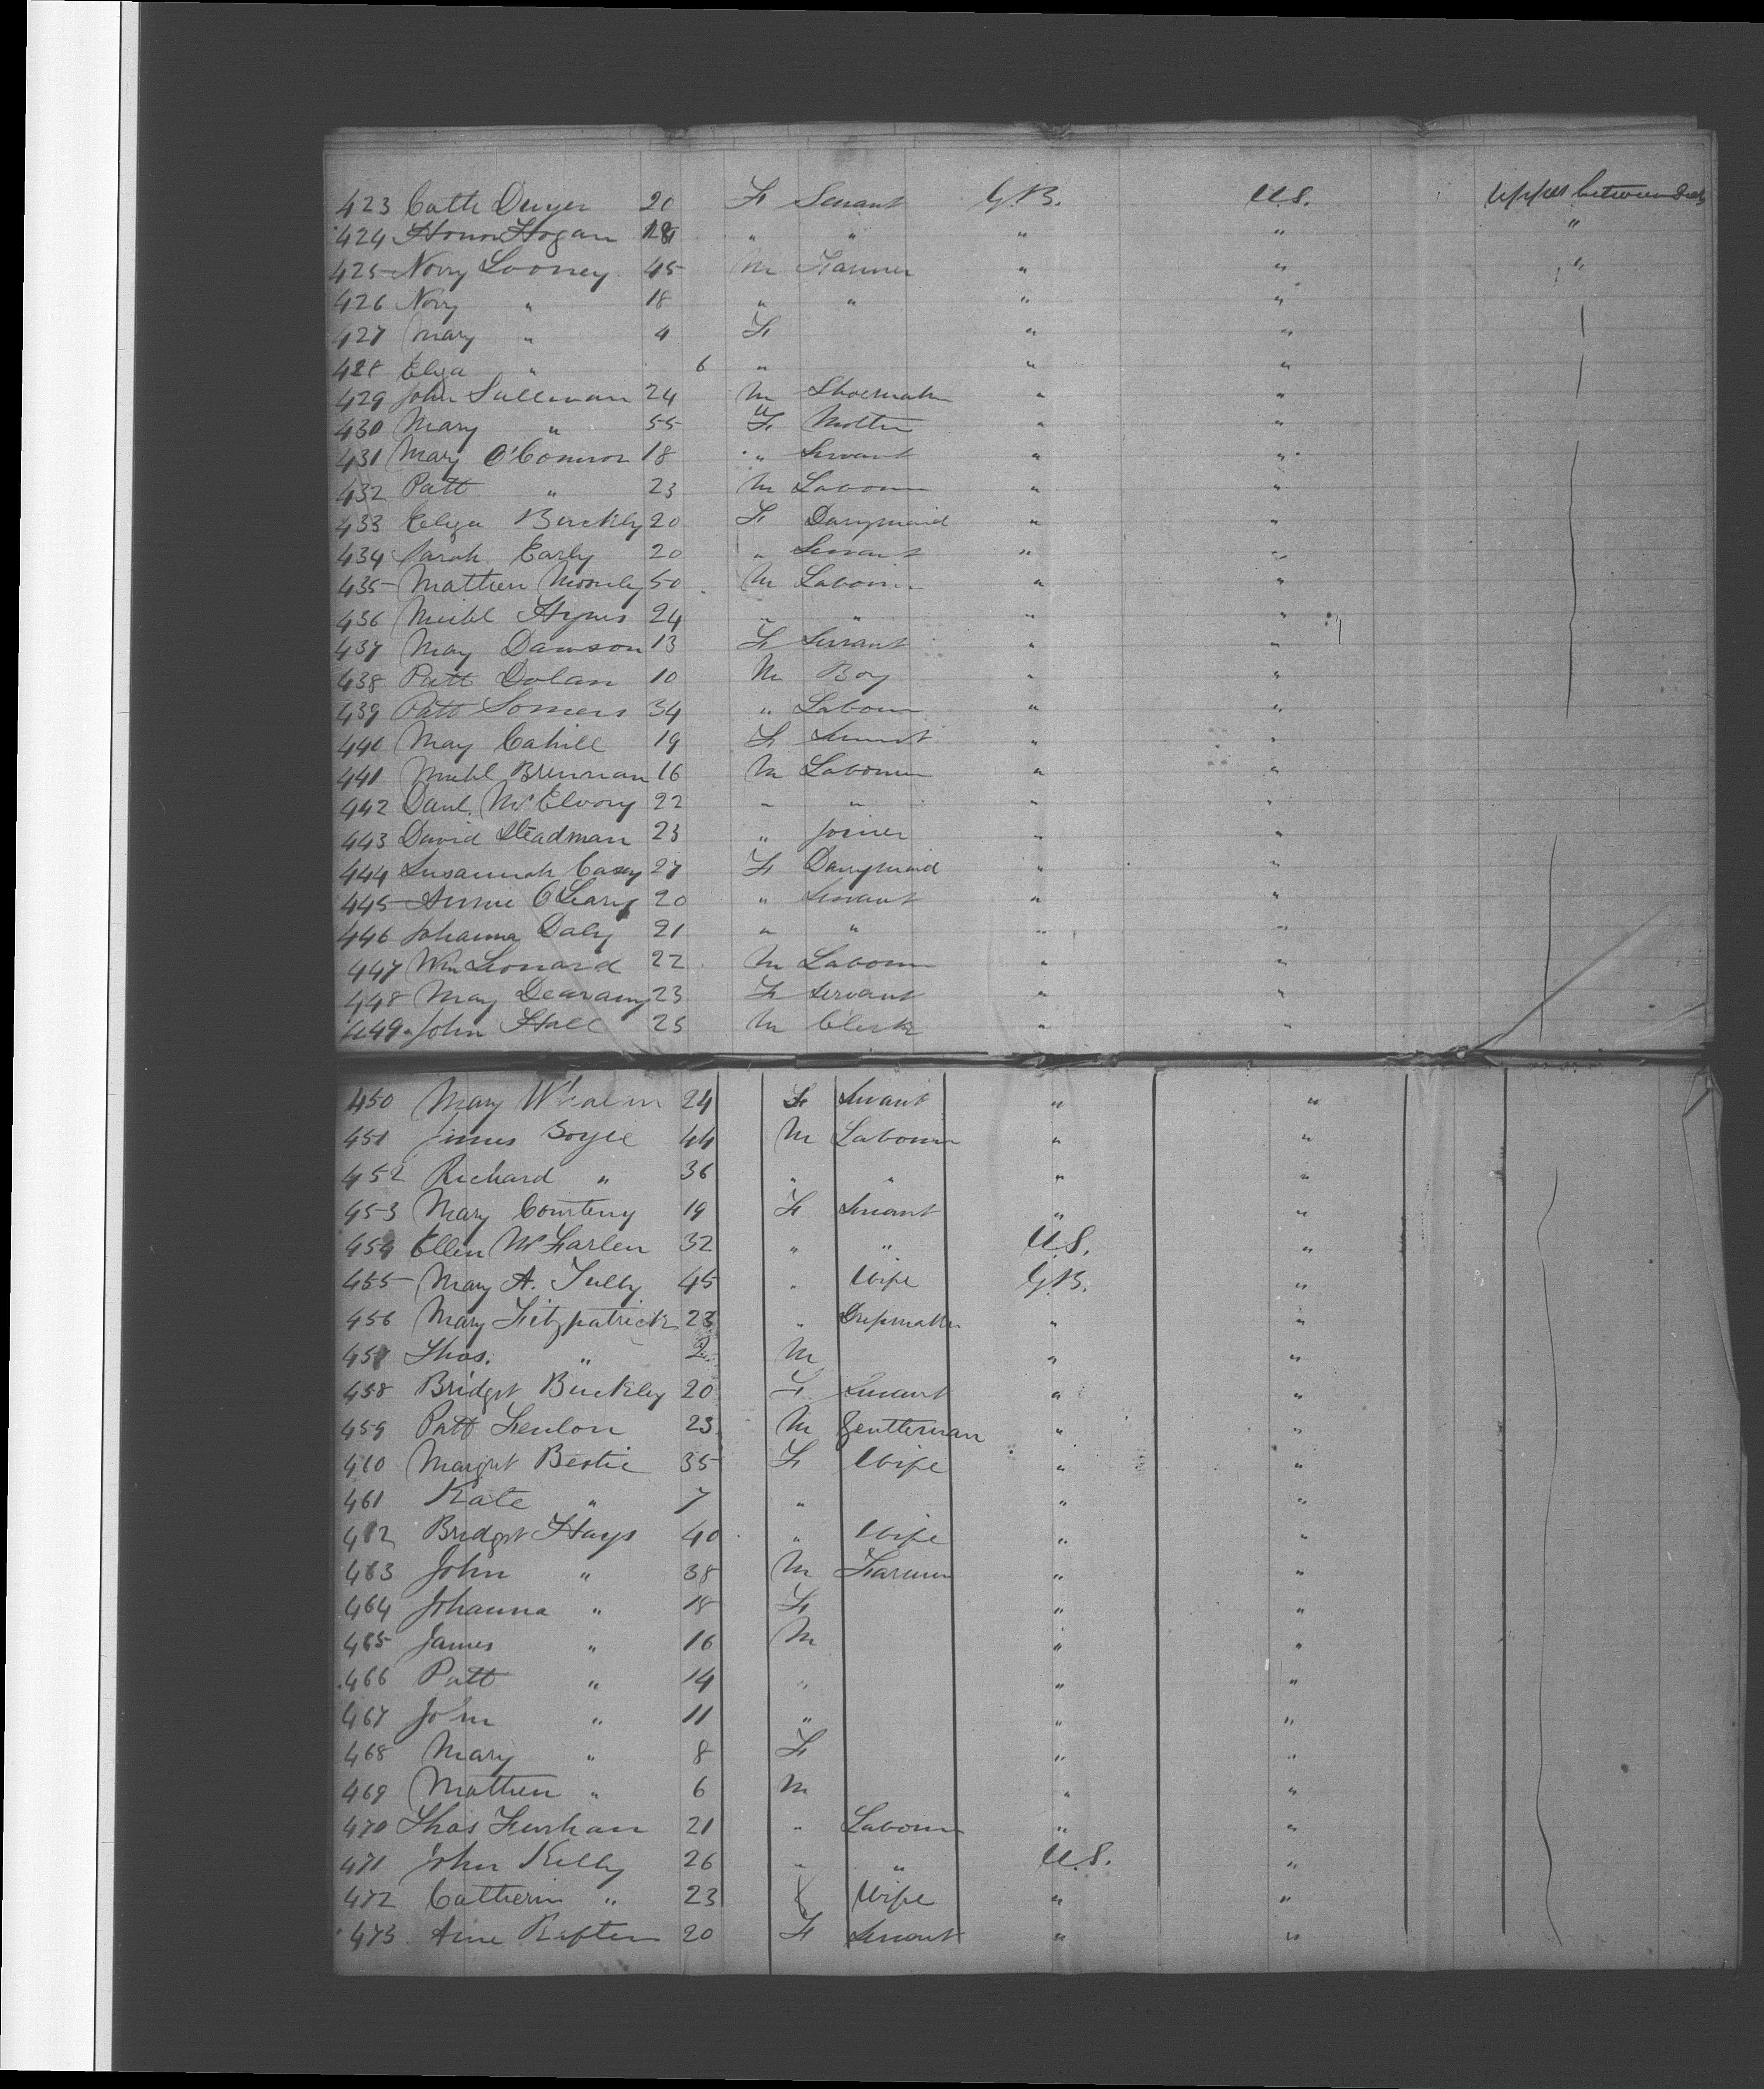 423 Cath Dwyer 20 F Servant G.B. U.S. Upper between Deck
424 Honor Hogan 18 " " " " "
425 Norry Looney 45 M Farmer " " "
426 Norry " 18 " " " "
427 Mary " 4 F " "
428 Eliza " 6 " " "
429 John Sullivan 24 M Shoemaker " "
430 Mary " 55 F Mother " "
431 Mary O'Connor 18 " Servant " "
432 Patt " 23 M Labourer " "
433 Eliza Buckley 20 F Dairymaid " "
434 Sarah Early 20 " Servant " "
435 Mathew 50 M Labourer " "
436 Michl Hynes 24 " " " "
437 May Dawson 13 F Servant " "
438 Patt Dolan 10 M Boy " "
439 Patt Somers 34 " Labour " "
440 May Cahill 19 F Servant " "
441 Michl Brennan 16 M Labourer " "
442 Danl. McElvory 22 " " " "
443 David Steadman 23 " Joiner " "
444 Susannah Casey 27 F Dairymaid " "
445 Annie O'Leary 20 " Servant " "
446 Johanna Daly 21 " " " "
447 Wm Leonard 22 M Labourer " "
448 May 23 F Servant " "
449 John Hall 25 M Clerk " "
450 Mary 24 F Servant " "
451 James Boyle 44 M Labourer " "
452 Richard " 36 " " " "
453 Mary Courteny 19 F Servant " "
454 Ellen McFarlen 32 " " U.S. "
455 Mary A. Tully 45 " Wife G.B. "
456 Mary Fitzpatrick 23 " Dressmaker " "
457 Thos. " 2 M " "
458 Bridget Buckley 20 F Servant " "
459 Patt Fenlon 23 M Gentleman " "
460 Margret Bestie 35 F Wife " "
461 Kate " 7 " " "
462 Bridget Hays 40 " Wife " "
463 John " 38 M Farmer " "
464 Johanna " 18 F " "
465 James " 16 M " "
466 Patt " 14 " " "
467 John " 11 " " "
468 Mary " 8 F " "
469 Mathew " 6 M " "
470 Thos 21 " Labourer " "
471 John Kelly 26 " " U.S. "
472 Catherin " 23 Wife " "
473 Ane 20 F Servant " "